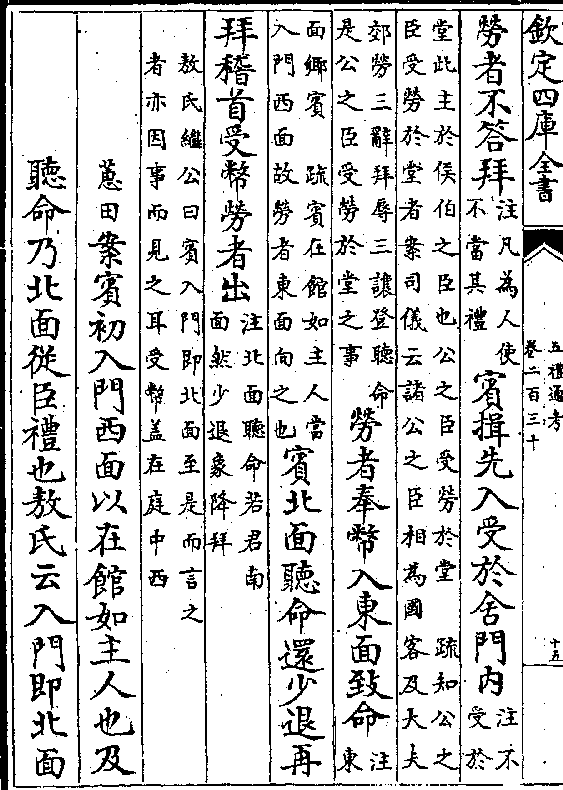 欽定四庫全書
五禮通考
卷二百三十
十五
勞者不答拜注凡為人使不當其禮賓揖先入受於舍門內注不受於
堂此主於侯伯之臣也公之臣受勞於堂 疏知公之
臣受勞於堂者案司儀云諸公之臣相為國客及大夫
郊勞三辭拜辱三讓登聽命是公之臣受勞於堂之事勞者奉幣入東面致命注東
面鄉賓 疏賓在館如主人當入門西面故勞者東面向之也賓北面聽命還少退再
拜稽首受幣勞者出注北面聽命若君南面然少退象降拜
敖氏繼公曰賓入門即北面至是而言之
者亦因事而見之耳受幣蓋在庭中西
蕙田案賓初入門西面以在館如主人也及
聽命乃北面從臣禮也敖氏云入門即北面